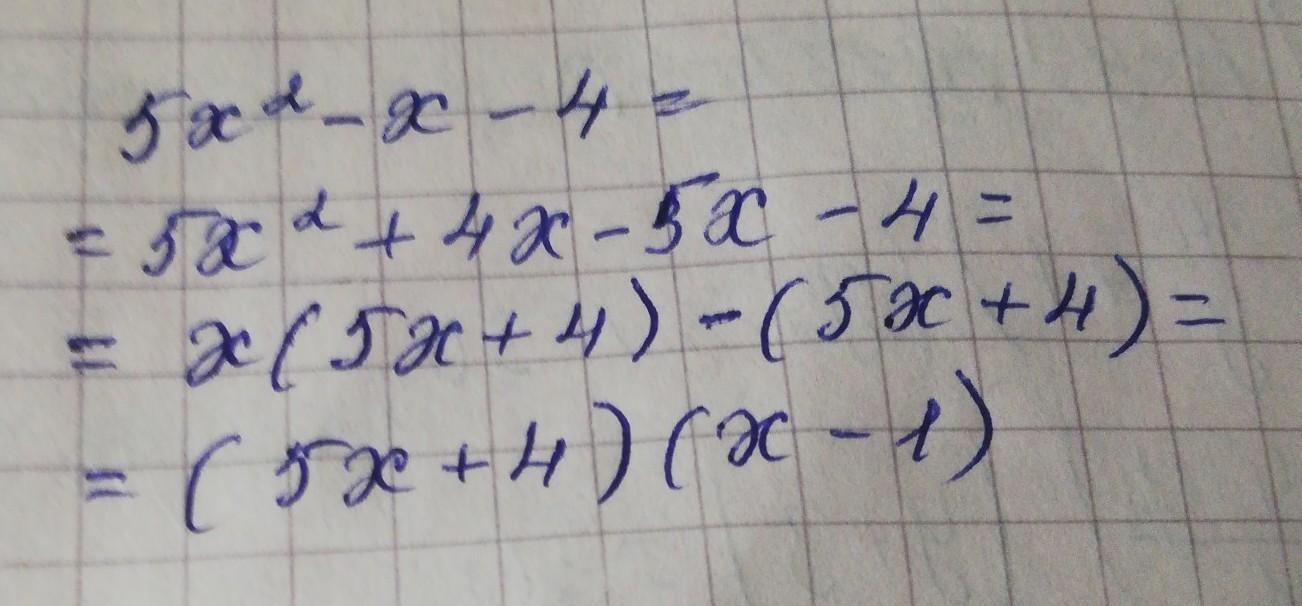 5x² - x - 4 =
= 5x² + 4x - 5x - 4 =
= x(5x + 4) - (5x + 4) =
= (5x + 4)(x - 1)